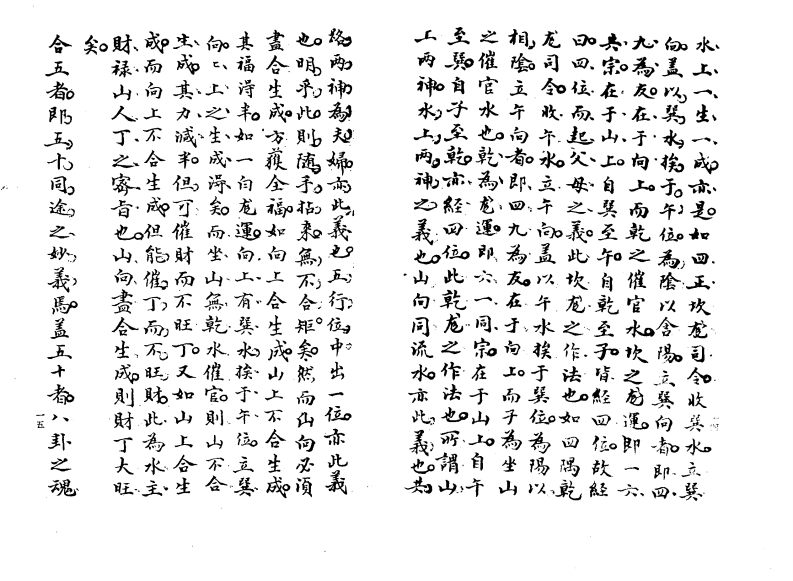 水上一生一成亦是如四正坎龙司令收巽水立巽
向盖以巽水挨于午位為陰以含陽立巽向者即四
九為友在于向上而乾之催官水坎之龙運即一六
共宗在于山上自巽至午自乾至子皆經四位故經
曰四位而起父母之義此坎龙之作法也如四隅乾
龙司令收午水立午向盖以午水挨于巽位為陽以
相陰立午向者即四九為友在于向上而子為坐山
之催官水也乾為龙運即六一同宗在于山上自午
至巽自子至乾亦經四位此乾龙之作法也所謂山
上两神水上两神之義也山向同流水亦此義也其
路两神為夫婦亦此義也五行位中出一位亦此義
也明乎此則随手拈来無不合矩矣然而山向必須
盡合生成方獲全福如向上合生成山上不合生成
其福淂半如一白龙運向上有巽水挨于午位立巽
向向上之生成淂矣而坐山無乾水催官則山不合
生成其力減半但可催財而不旺丁又如山上合生
成而向上不合生成但能催丁而不旺財此為水主
財禄山人丁之密旨也山向盡合生成則財丁大旺
矣
合五者即五十同途之妙義焉盖五十者八卦之魂
一五